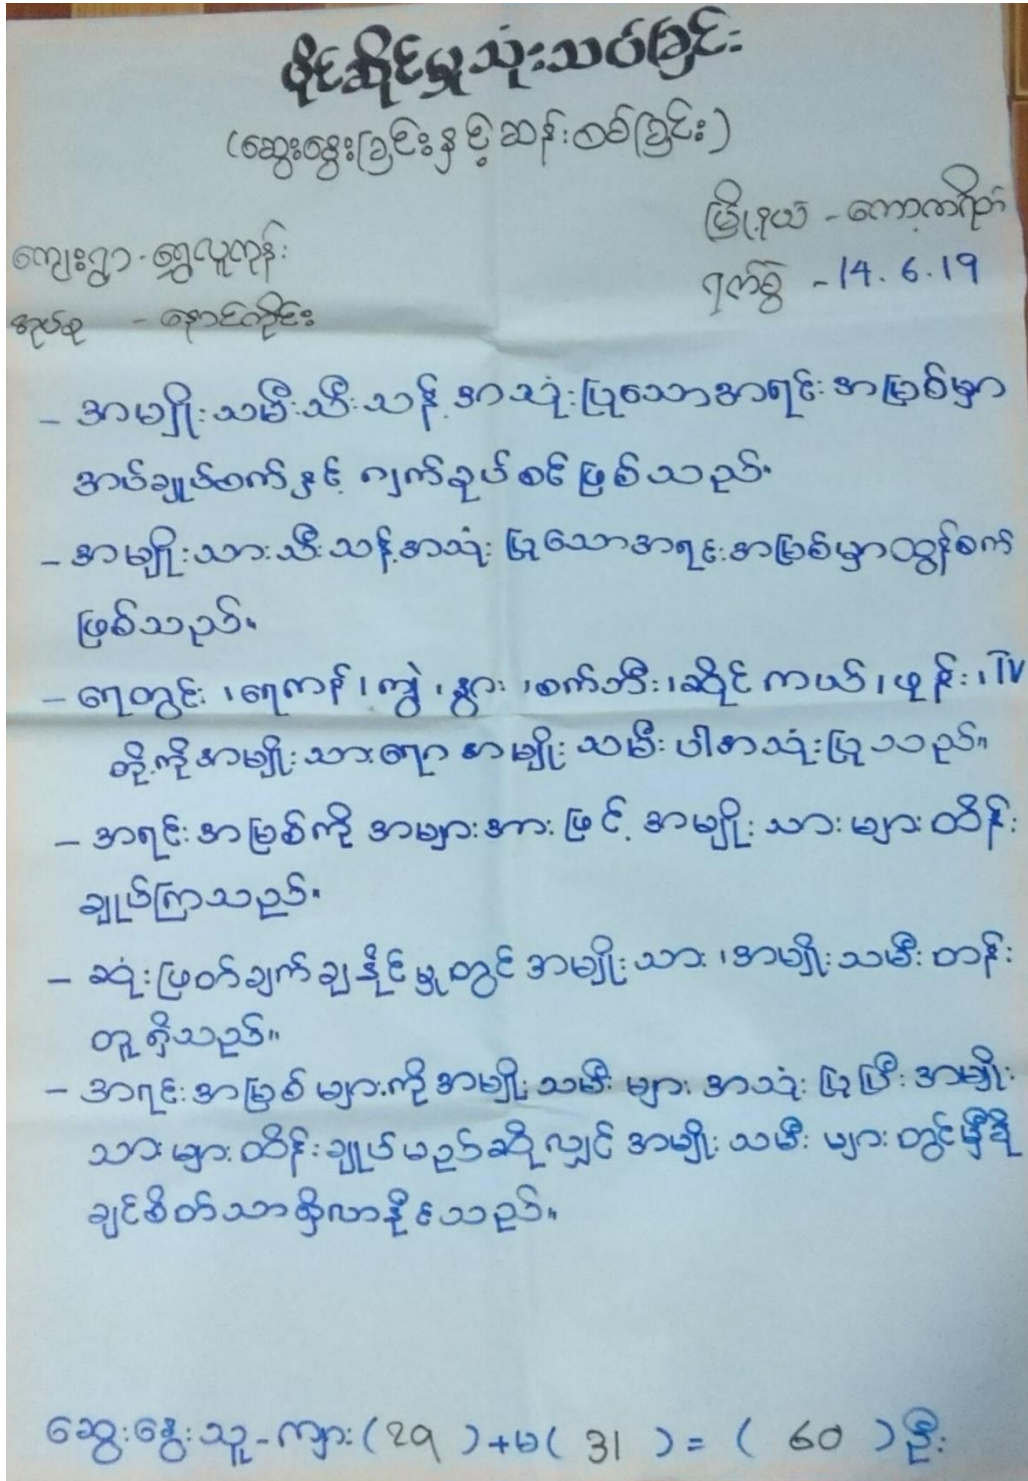 ပိုင်ဆိုင်မှုသုံးသပ်ခြင်း
(ဆွေးနွေးခြင်းနှင့်ဆန်းစစ်ခြင်း)
မြို့နယ် - ကော့ကရိတ်
ကျေးရွာ - ရွှေလူကုန်း
ရက်စွဲ - 14. 6. 19
အုပ်စု - နောင်ကိုင်း
- အမျိုးသမီးသီးသန့် အသုံးပြုသောအရင်းအမြစ်မှာ
အပ်ချုပ်စက်နှင့် ဂျက်ခုပ်စင် ဖြစ်သည်။
- အမျိုးသားသီးသန့်အသုံးပြုသောအရင်းအမြစ်မှာထွန်စက်
ဖြစ်သည်။
- ရေတွင်း ၊ရေကန် ၊ကျွဲ ၊နွား ၊စက်ဘီး၊ဆိုင်ကယ် ၊ဖုန်း ၊TV
တို့ကိုအမျိုးသားရော အမျိုးသမီးပါအသုံးပြုသည်။
- အရင်းအမြစ်ကို အများအားဖြင့် အမျိုးသားများထိန်း
ချုပ်ကြသည်။
- ဆုံးဖြတ်ချက်ချနိုင်မှုတွင် အမျိုးသား ၊အမျိုးသမီး တန်း
တူရှိသည်။
- အရင်းအမြစ်များကိုအမျိုးသမီးများ အသုံးပြုပြီး အမျိုး
သားများထိန်းချုပ်မည်ဆိုလျှင် အမျိုးသမီးများတွင်မှီခို
ချင်စိတ်သာရှိလာနိုင်သည်။
ဆွေးနွေးသူ - ကျား ( 29 ) + မ ( 31 ) = ( 60 ) ဦး